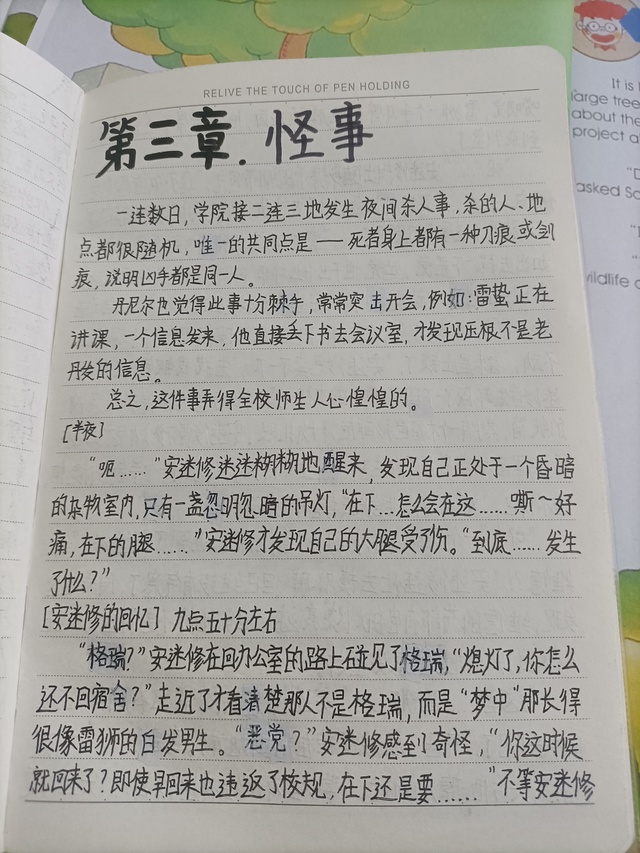 RELIVE THE TOUCH OF PEN HOLDING
第三章. 怪事
一连数日,学院接二连三地发生夜间杀人事,杀的人、地
点都很随机,唯一的共同点是——死者身上都有一种刀痕或剑
痕,说明凶手都是同一人。
丹尼尔也觉得此事十分棘手,常常突击开会,例如:雷蛰正在
讲课,一个信息发来,他直接丢下书去会议室,才发现压根不是老
丹发的信息。
总之,这件事弄得全校师生人心惶惶的。
[半夜]
“呃……”安迷修迷迷糊糊地醒来,发现自己正处于一个昏暗
的杂物室内,只有一盏忽明忽暗的吊灯,“在下…怎么会在这……嘶~好
痛,在下的腿……”安迷修才发现自己的大腿受了伤。“到底……发生
了什么?”
[安迷修的回忆] 九点五十分左右
“格瑞?”安迷修在回办公室的路上碰见了格瑞,“熄灯了,你怎么
还不回宿舍?”走近了才看清楚那人不是格瑞,而是“梦中”那长得
很像雷狮的白发男生。“恶党?”安迷修感到奇怪,“你这时候
就回来了?即使早回来也违返了校规,在下还是要……”不等安迷修
It is
large tree
about the
project a
"D
asked Sc
wildlife